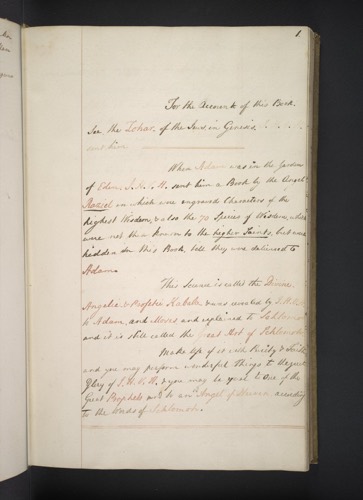 1.
For the Account of this Book.
See the Zohar of the Jews, in Genesis,
sent him
When Adam was in the Garden
of Eden, J.H.V.H. sent him a Book by the Angel
Raziel in which were engraved Characters of the
highest Wisdom, & also the 72 Species of Wisdom, which
were not then known to the higher Saints, but were
hidden in this Book, till they was delivered to
Adam
This Science is called the Divine,
Angelic & Profetic Kabala & was revealed by
to Adam, and Moses and explained to
and it is still called the Art of
Make Use of it with Purity &
and you may perform wonderful things to
Glory of J.H.V.H. & you may be year to One of the
Great Prophets and to an Angel of according
to the Words of